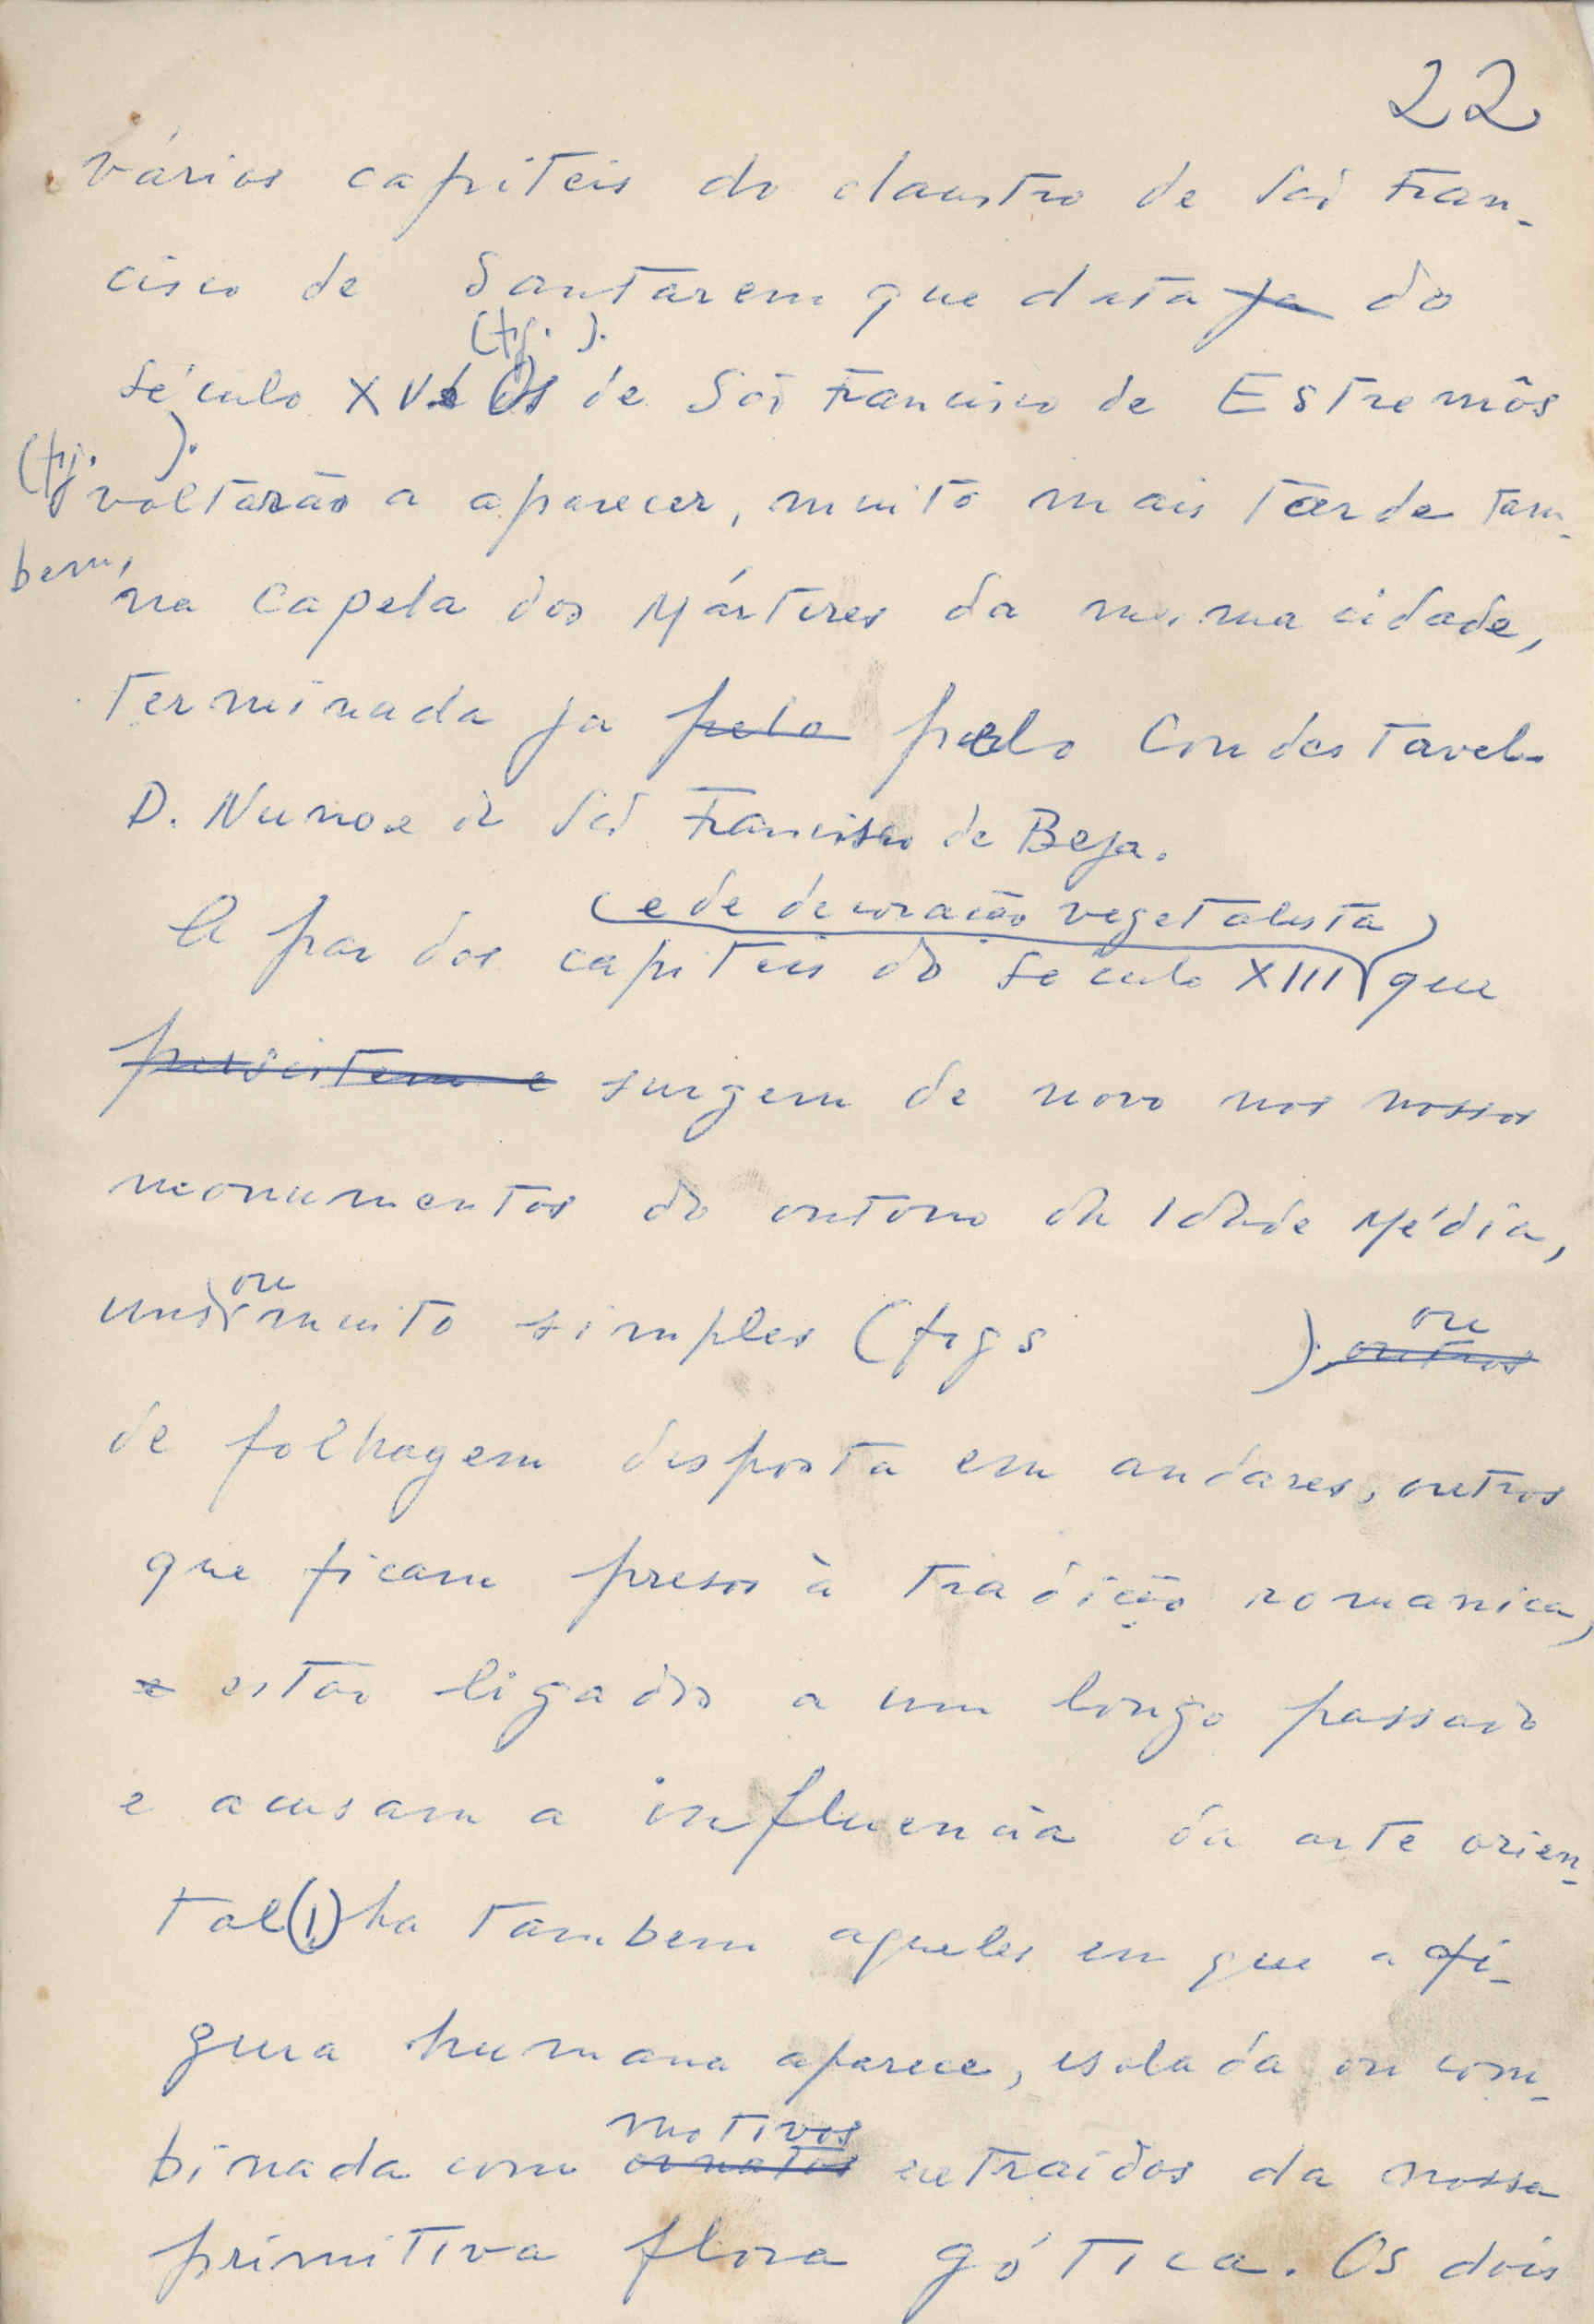 22
vários capiteis do claustro de São Fran-
cisco de Santarem que data ja do
(fig. ).
século XV Os de São Francisco de Estremôs
(fig. ).
voltarão a aparecer, muito mais tarde tam-
bem,
na Capela dos Mártires da mesma cidade,
terminada ja pelo pelo Condestavel
D. Nuno e de São Francisco de Beja.
(e de decoração vegetalista)
A par dos capiteis do século XIII que
persistem e surgem de novo nos nossos
monumentos do outono da Idade Média,
ou ou
uns muito simples (figs ). outros
de folhagem disposta em andares, outros
que ficam presos à tradição romanica,
e estão ligados a um longo passado
e acusam a influencia da arte orien-
tal(1) ha tambem aqueles em que a fi-
gura humana aparece, isolada ou com-
motivos
binada com ornatos extraidos da nossa
primitiva flora gótica. Os dois